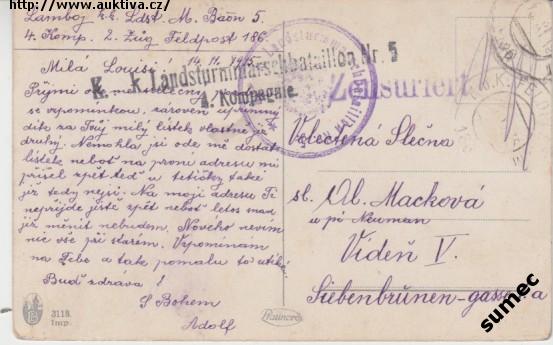 http://www.auktiva.cz/
Lamboj k.k. Ldst. M. Baon 5.
4. Komp. 2. Zug Feldpost 186
14. 11. 1915
Milá Louisi!
K. k. Landsturmmarschbataillon Nr. 5
4. Kompagnie.
Zensuriert
Přijmi ode mne
se vzpomínkou, zároveň upřímný
dík za Tvůj milý lístek vlastně již
druhý. Nemohla jsi ode mě dostat
lístek neboť na první adresu mi
přišel zpět teď u tetičky také
již tedy nejsi. Na moji adresu Ti
nepřijde jistě zpět neboť letos snad
již měnit nebudem. Nového nevím
nic vše při starém. Vzpomínám
na Tebe a tak pomalu to utíká
Buď zdráva!
S Bohem
Adolf
Velectěná Slečna
sl. Al. Macková
u pí Neuman
Vídeň V.
Siebenbrünnen-gasse a
3118.
Imp.
sumec